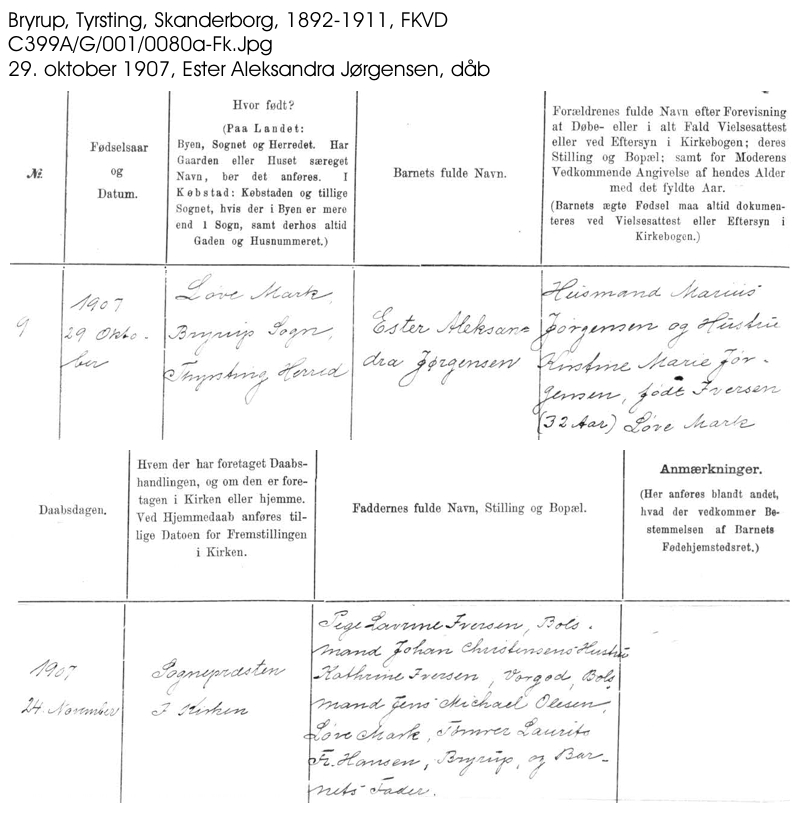 Bryrup, Tyrsting, Skanderborg, 1892-1911, FKVD
C399A/G/001/0080a-Fk.Jpg
29. oktober 1907, Ester Aleksandra Jørgensen, dåb
№.
Fødselsaar
og
Datum.
Hvor født?
(Paa Landet:
Byen, Sognet og Herredet. Har
Gaarden eller Huset særeget
Navn, bør det anføres. I
Købstad: Købstaden og tillige
Sognet, hvis der i Byen er mere
end 1 Sogn, samt derhos altid
Gaden og Husnummeret.)
Barnets fulde Navn.
Forældrenes fulde Navn efter Forevisning
af Døbe- eller i alt Fald Vielsesattest
eller ved Eftersyn i Kirkebogen; deres
Stilling og Bopæl; samt for Moderens
Vedkommende Angivelse af hendes Alder
med det fyldte Aar.
(Barnets ægte Fødsel maa altid dokumen-
teres ved Vielsesattest eller Eftersyn i
Kirkebogen.)
9
1907
29 Okto-
ber
Løve Mark,
Bryrup Sogn,
Thyrsting Herred
Ester Aleksan=
dra Jørgensen
Husmand Marius
Jørgensen og Hustru
Kirstine Marie Jør-
gensen, født Iversen
(32 Aar) Løve Mark
Daabsdagen.
Hvem der har foretaget Daabs-
handlingen, og om den er fore-
tagen i Kirken eller hjemme.
Ved Hjemmedaab anføres til-
lige Datoen for Fremstillingen
i Kirken.
Faddernes fulde Navn, Stilling og Bopæl.
Anmærkninger.
(Her anføres blandt andet,
hvad der vedkommer Be-
stemmelsen af Barnets
Fødehjemstedsret.)
1907
24. November
Sognepræsten
I Kirken
Pige Lavrine Iversen, Bols-
mand Johan Christensens Hustru
Kathrine Iversen, Vorgod, Bols
mand Jens Michael Olesen,
Løve Mark, Tømrer Laurits
Fr. Hansen, Bryrup, og Bar-
nets Fader.